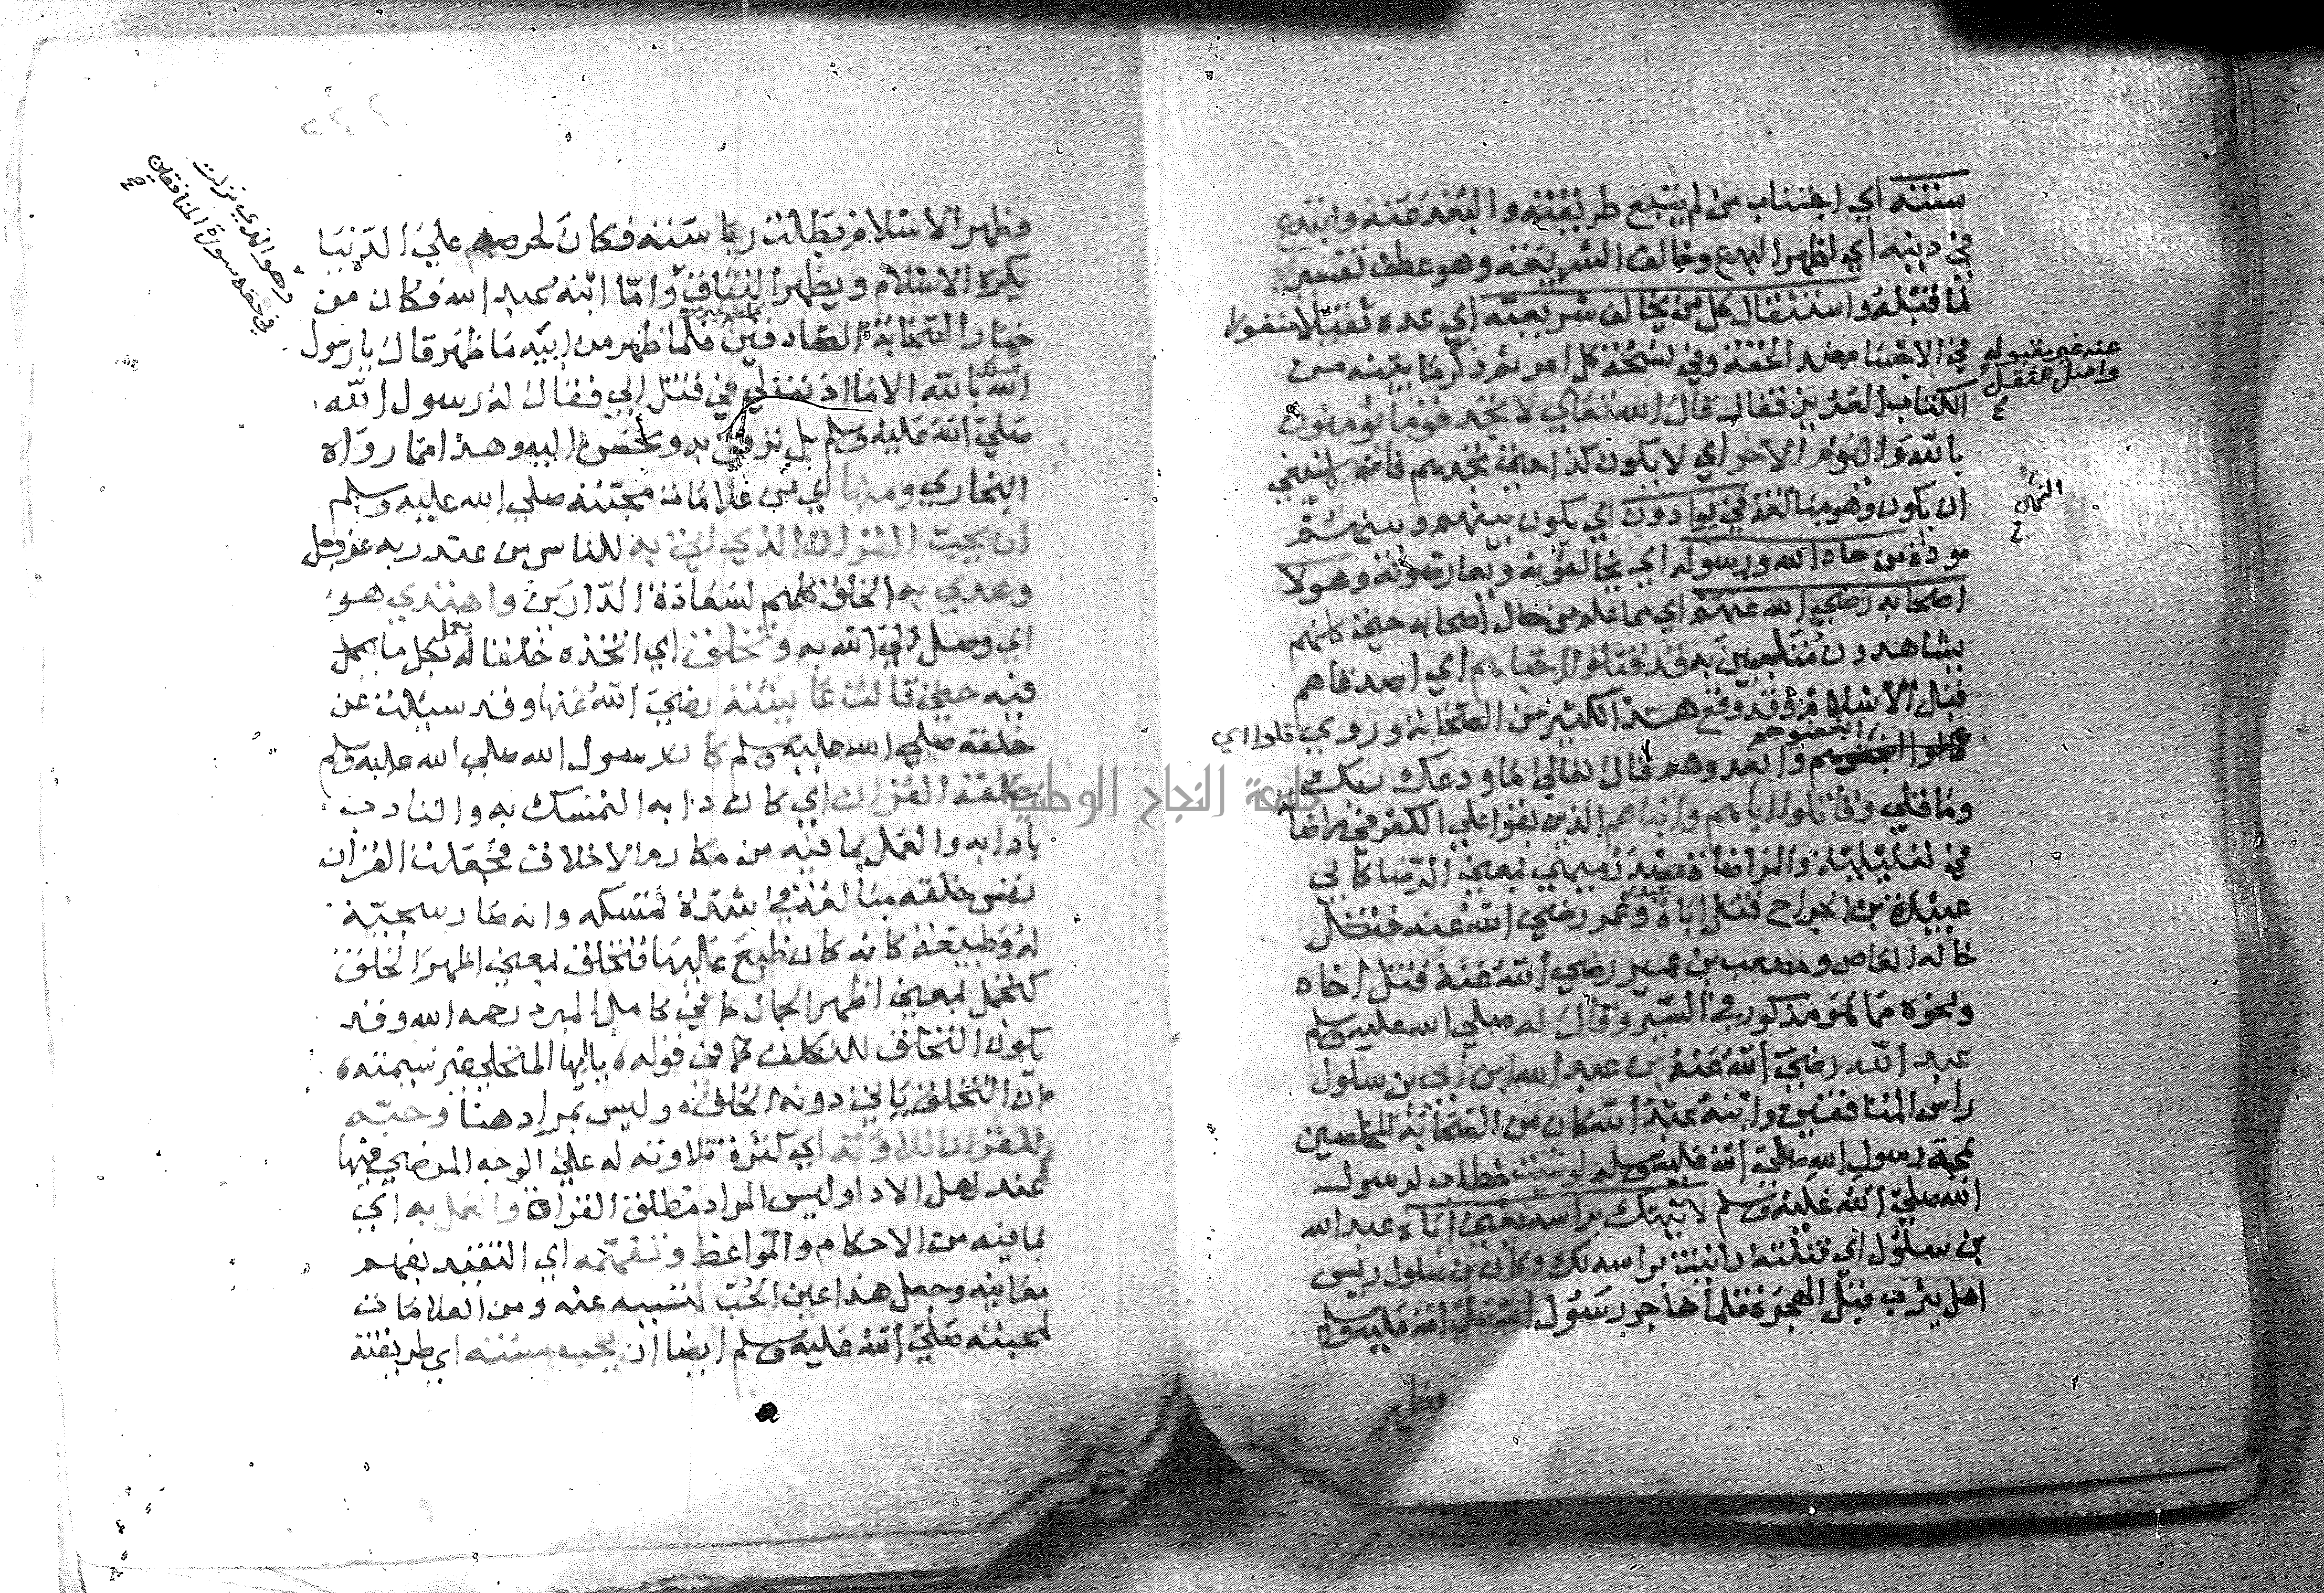 سنته اي اجتناب من لم يتبع طريقته والبعد عنه وابتدع
في دينه اي اظهر البدع وخالف الشريعة وهو عطف تفسير
لما قبله واستثقال كل من يخالف شريعته اي عده ثقيلا منفورا
عنه غير مقبول واصل الثقل
في الاجسام ضد الخفة وفي نسخة كل امر ثم ذكر ما بينه من
الكتاب العزيز فقال قال الله تعالي لا تجد قوما يؤمنون
بالله واليوم الاخر اي لا يكون كذا حتي تجدهم فانه لا ينبغي
ان يكون وهو مبالغة في يوادون اي يكون بينهم وبينهم
مودة من حاد الله ورسوله اي يخالفونه ويعارضونه وهولا
اصحابه رضي الله عنهم اي مما علم من حال اصحابه حتي كانهم
يشاهدون متلبسين به قد قتلوا احباهم اي اصدقاهم
قبل الاسلام وقد وقع هذا الكثير من الصحابة وروي
قلوا اي
ابغضوهم
والعدو هد قال تعالي ما ودعك ربك
وما قلي وقاتلوا اباهم وابناهم الذين بقوا علي الكفر في مرضاته
والمراضاة مصدر ميمي بمعني الرضا كابي
عبيدة بن الجراح قتل اباه وعمر رضي الله عنه قتل
خاله العاص ومصعب بن عمير رضي الله عنه قتل اخاه
ونحوه مما هو مذكور في السير وقال له صلي الله عليه وسلم
عبد الله رضي الله عنه بن عبد الله ابن ابي بن سلول
راس المنافقين وابنه عبد الله كان من الصحابة المخلصين
محبة رسول الله صلي الله عليه وسلم لو شئت خطاب لرسول
الله صلي الله عليه وسلم لاتيتك براسه يعني اباه عبد الله
بن سلول اي قتلته واتيت براسه لك وكان بن سلول رئيس
اهل يثرب قبل الهجرة فلما هاجر رسول الله صلي الله عليه وسلم
وظهر
وظهر الاسلام بطلت رياسته فكان لحرصه علي الدنيا
يكره الاسلام ويظهر النفاق واما ابنه عبد الله فكان من
وهو الذي نزلت
في حقه سورة المنافقين
خيار الصحابة الصادقين فلما ظهر من ابيه ما ظهر قال يا رسول
الله بالله الا ما اذنت لي في قتل ابي فقال له رسول الله
صلي الله عليه وسلم بل نرفق به ونحسن اليه وهذا مما رواه
البخاري ومنها اي من علامات محبته صلي الله عليه وسلم
ان يحب القران الذي اتي به للناس من عند ربه عز وجل
وهدي به الخلق كلهم لسعادة الدارين واهتدي هو
اي وصل الي الله به وتخلق اي اتخذه خلقا له بعمل
فيه حتي قالت عايشة رضي الله عنها وقد سيلت عن
خلقه صلي الله عليه وسلم كان رسول الله صلي الله عليه وسلم
خلقه القران اي كان دابه التمسك به والتادب
بادابه والعمل بما فيه من مكارم الاخلاق فجعلت القران
نفس خلقه مبالغة في شدة تمسكه وانه صار سجية
له وطبيعة كانه كان طبع عليها فتخلق بمعني اظهر الخلق
كتجمل بمعني اظهر الجمال كما في كامل المبرد رحمه الله وقد
يكون التخلق للتكلف كما في قوله يا ايها المتحلي غير شيمته
ان التخلق ياتي دونه الخلق وليس بمراد هنا وحبه
للقران تلاوته اي كثرة تلاوته له علي الوجه المرضي فيها
عند اهل الادا وليس المراد مطلق القراة والعمل به اي
بما فيه من الاحكام والمواعظ وتفهمه اي التقيد بفهم
معانيه وجعل هذا عين الحب لتسببه عنه ومن العلامات
لمحبته صلي الله عليه وسلم ايضا ان يحب سنته اي طريقته
جامعة النجاح الوطنية